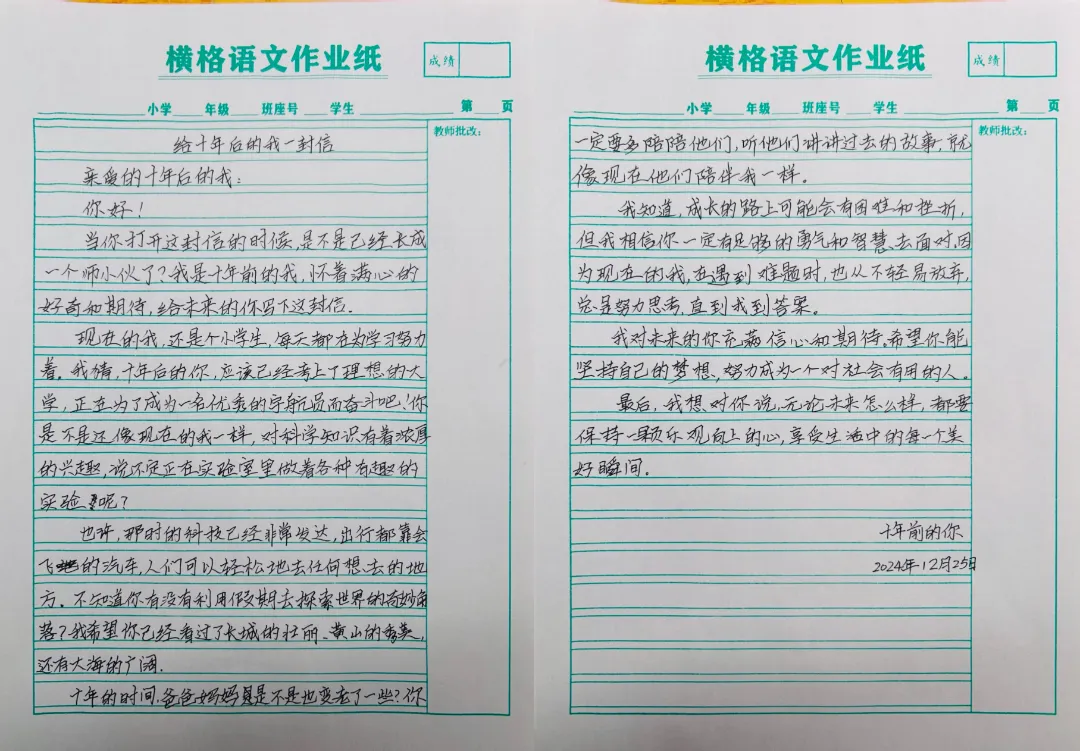 横格语文作业纸
成绩
小学 年级 班座号 学生 第 页
教师批改：
给十年后的我一封信
亲爱的十年后的我：
你好！
当你打开这封信的时候，是不是已经长成
一个帅小伙了？我是十年前的我，怀着满心的
好奇和期待，给未来的你写下这封信。
现在的我，还是个小学生，每天都在为学习努力
着。我猜，十年后的你，应该已经考上了理想的大
学，正在为了成为一名优秀的宇航员而奋斗吧！你
是不是还像现在的我一样，对科学知识有着浓厚
的兴趣，说不定正在实验室里做着各种有趣的
实验呢？
也许，那时的科技已经非常发达，出行都靠会
飞的汽车，人们可以轻松地去任何想去的地
方。不知道你有没有利用假期去探索世界的奇妙角
落？我希望你已经看过了长城的壮丽、黄山的秀美，
还有大海的广阔。
十年的时间，爸爸妈妈是不是也变老了一些？你
横格语文作业纸
成绩
小学 年级 班座号 学生 第 页
教师批改：
一定要多陪陪他们，听他们讲讲过去的故事，就
像现在他们陪伴我一样。
我知道，成长的路上可能会有困难和挫折，
但我相信你一定有足够的勇气和智慧去面对。因
为现在的我，在遇到难题时，也从不轻易放弃，
总是努力思考，直到找到答案。
我对未来的你充满信心和期待。希望你能
坚持自己的梦想，努力成为一个对社会有用的人。
最后，我想对你说，无论未来怎么样，都要
保持一颗乐观向上的心，享受生活中的每一个美
好瞬间。
十年前的你
2024年12月25日